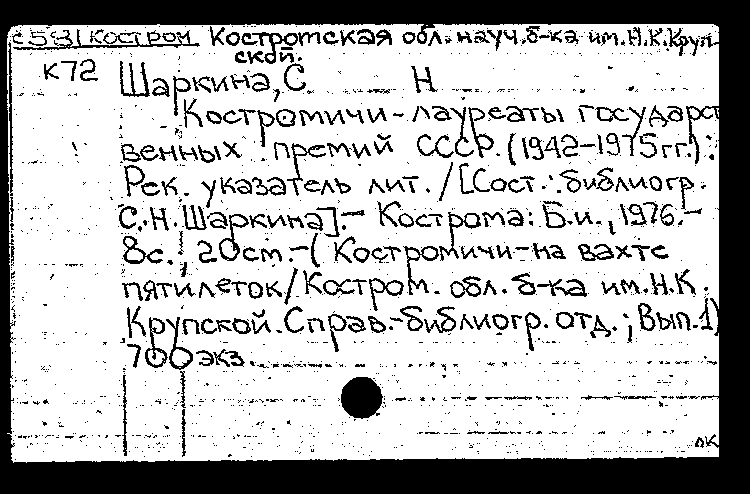 с581 Костром. Костромская обл. науч. б-ка им. Н.К. Круп-
ской.
К72 Шаркина, С Н
Костромичи - лауреаты государст
венных премий СССР. (1942-1975гг.):
Рек. указатель лит. / [Сост.: библиогр.
С.Н. Шаркина]. - Кострома: Б.и., 1976. -
8с.; 20см. - (Костромичи - на вахте
пятилеток / Костром. обл. б-ка им. Н.К.
Крупской. Справ.-библиогр. отд.; Вып. 1)
700 экз.